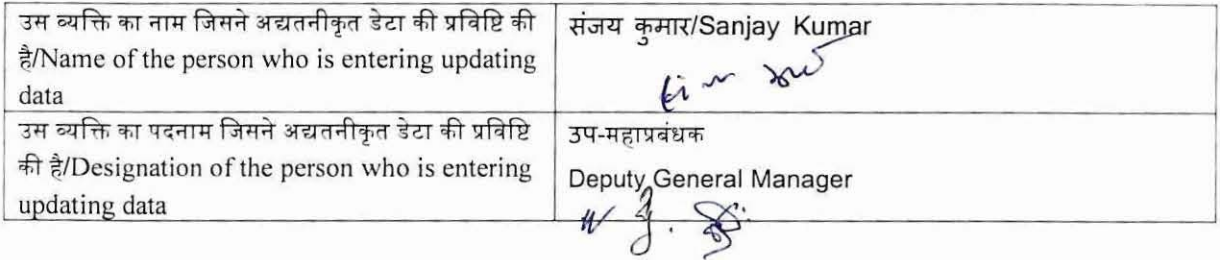 उस व्यक्ति का नाम जिसने अद्यतनीकृत डेटा की प्रविष्टि की
है/Name of the person who is entering updating
data
संजय कुमार/Sanjay Kumar
उस व्यक्ति का पदनाम जिसने अद्यतनीकृत डेटा की प्रविष्टि
की है/Designation of the person who is entering
updating data
उप-महाप्रबंधक
Deputy General Manager